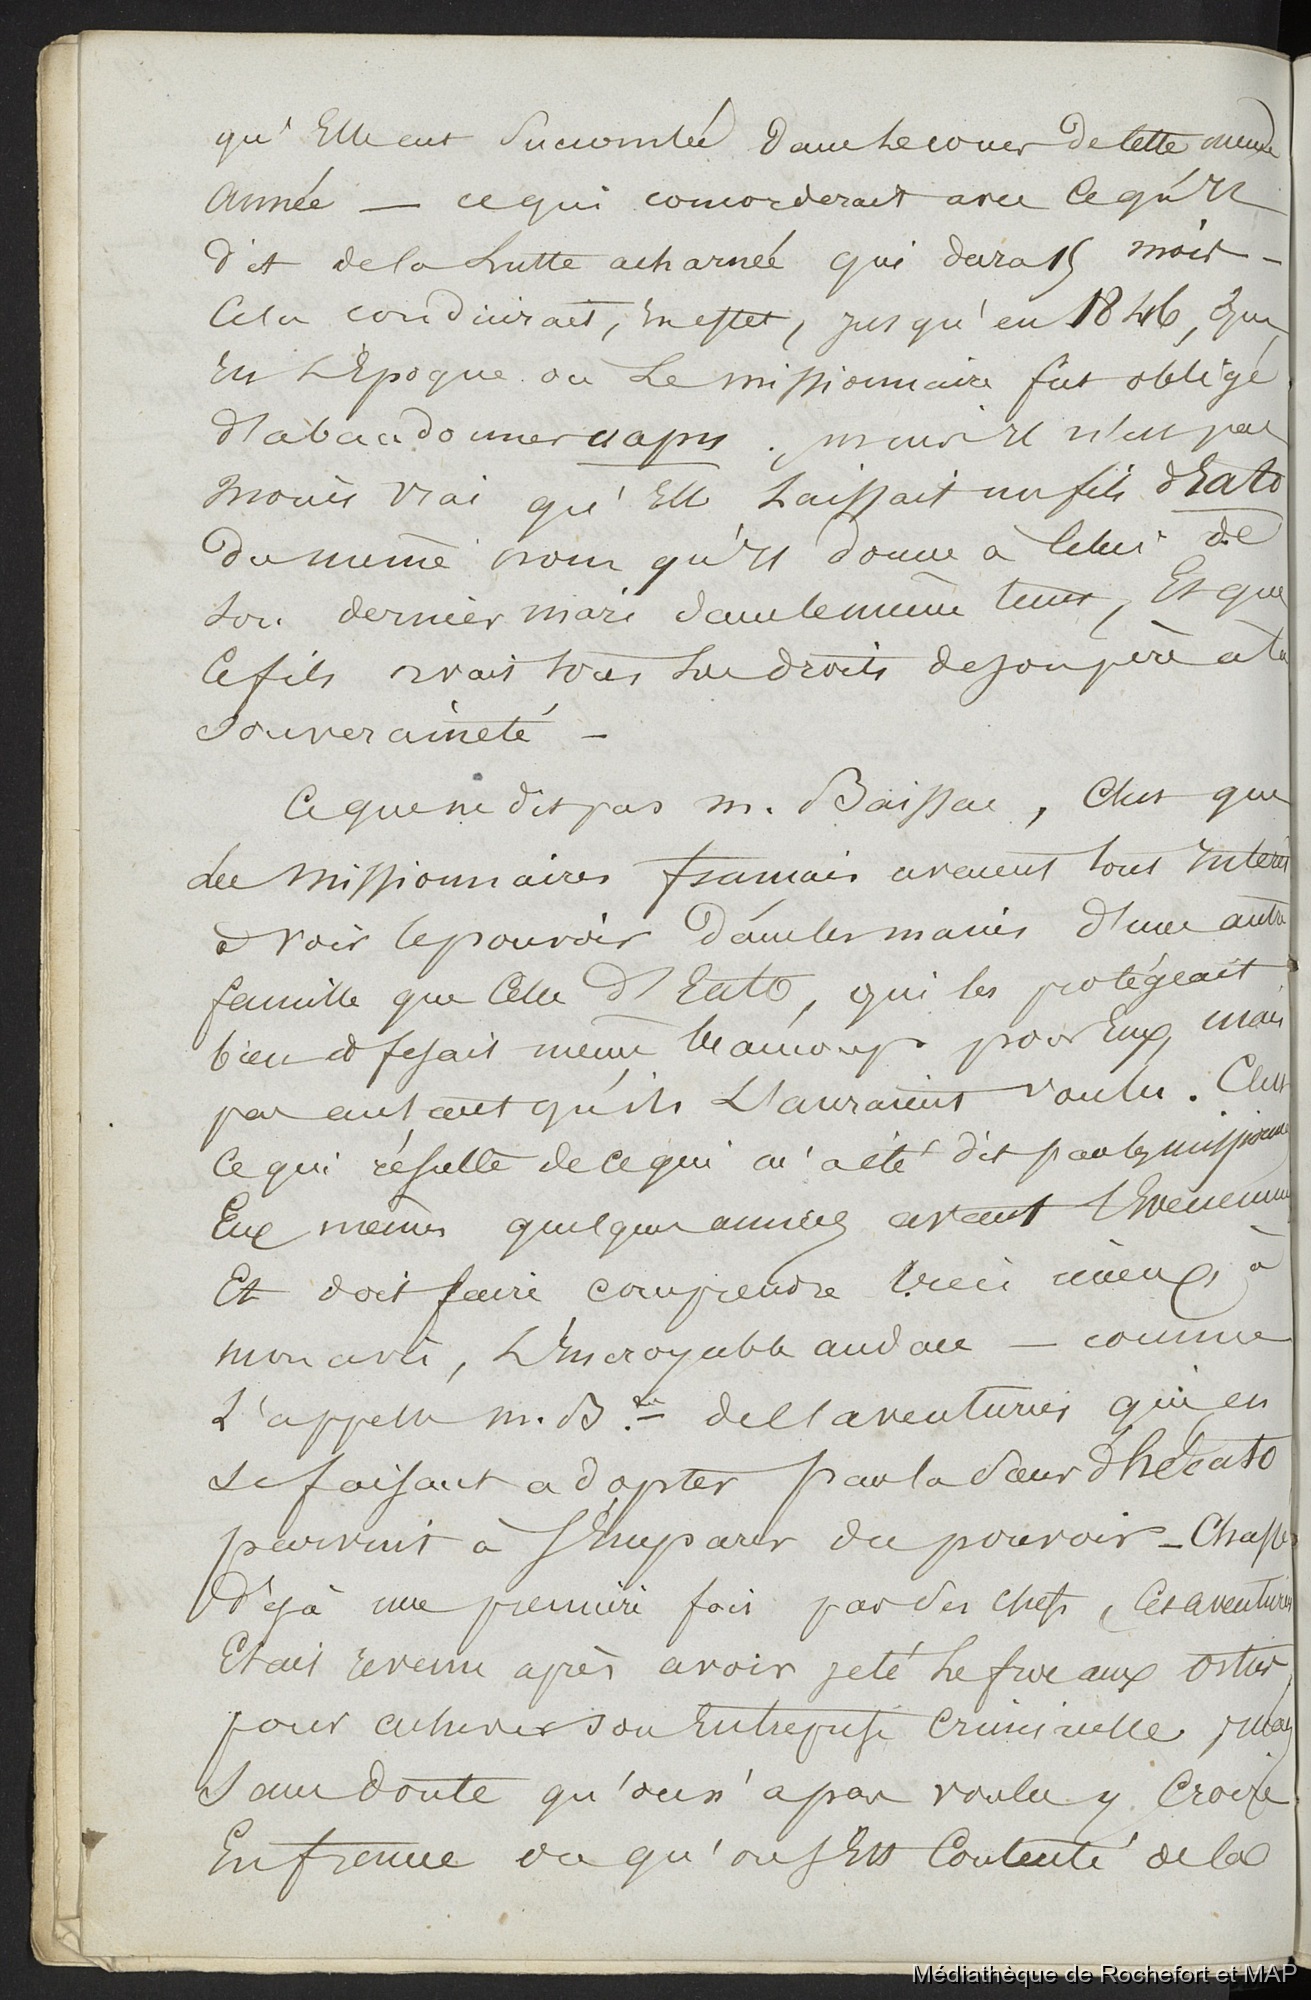 qu'Elle eut succombé dans le cours de cette même
année — ce qui concorderait avec ce qu'Il
dit de la Lutte acharnée qui dura 15 mois -
Cela conduirait, En effet, jusqu'en 1846,
En L'Epoque ou Le missionnaire fut obligé
d'abandonner uapu. mais Il n'en est pas
moins vrai qu'Elle Laissait un fils d'Eato
du même nom qu'Il donne à celui de
son dernier mari dans le même tems, Et que
ce fils avait tous Les droits de son père à la
souveraineté -
Ce que ne dit pas m. Baissac, C'est que
Les missionnaires français avaient tout Intérêt
à voir le pouvoir dans les mains d'une autre
famille que Celle d'Eato, qui les protégeait
bien & fesait même beaucoup pour Eux, mais
pas autant qu'ils L'auraient voulu. C'est
ce qui résulte de ce qui m'a été dit par les missionnaires
Eux mêmes quelques années avant l'Evenement
Et doit faire comprendre bien mieux, à
mon avis, L'Incroyable audace — comme
L'appelle m. B. de l'aventurier qui en
se faisant adopter par la Sœur d'hééato
parvint à s'Emparer du pouvoir - Chassé
déjà une première fois par des chefs, Cet aventurier
Etait revenu après avoir jeté Le froc aux orties
pour achever son Entreprise criminelle, mais
Sans doute qu'on n'a pas voulu y Croire
En france ou qu'on s'Est Contenté de la